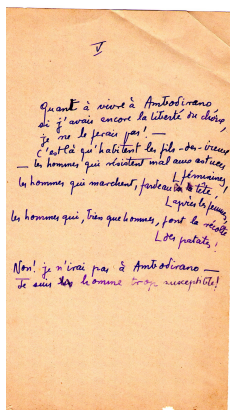 V
Quant à vivre à Ambodirano
si j'avais encore la liberté du choix,
je ne le ferais pas! —
c'est là qu'habitent les fils-des-
— les hommes qui résistent mal aux astuces
[féminines!
les hommes qui marchent, fardeau tête
[après les femmes,
les hommes qui, bien que hommes, font la récolte
[des patates!
Non! je n'irai pas à Ambodirano —
Je suis homme trop susceptible!